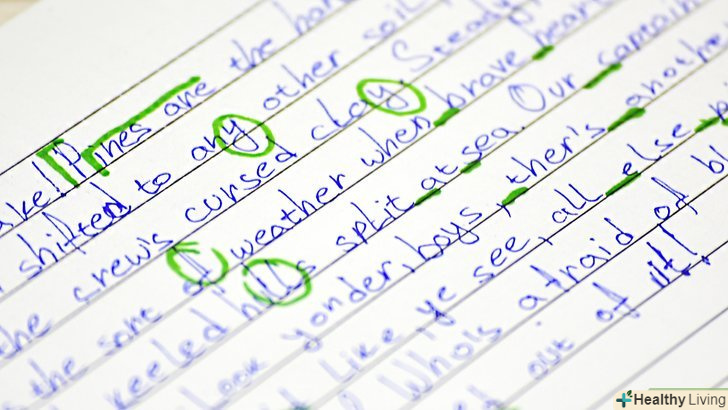 Pines are the
shifted to any other soil
the crew's cursed clay. Steady
the sort of weather when brave heart
keeled hulls split at sea. Our captain
Look yonder, boys, there's anothe
Like ye see, all else
Who's afraid of bl
out of it!
Healthy Living